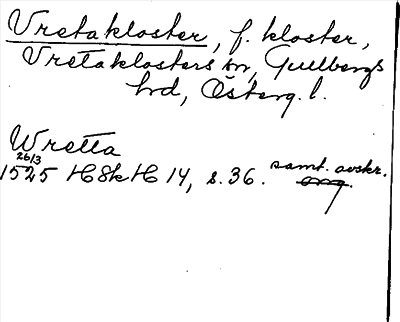 Vretakloster, f. kloster,
Vretaklosters sn, Gullbergs
hd, Österg. l.
Wretta
26/3
1525 HSkH 14, s. 36. samt. avskr.
orig.